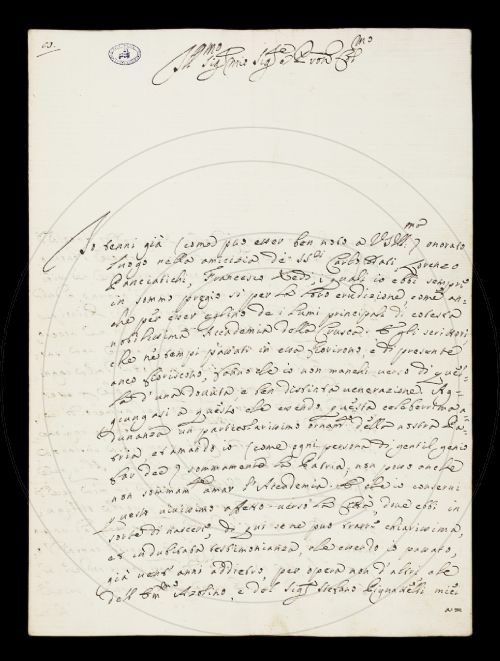 63.
Ill.mo Sig.r mio Sig.re e P.ron Col.mo
Io tenni già (come può esser ben noto a VS Ill.ma) onorato
luogo nella amicizia de' SS.ri Carlo Dati, Lorenzo
Panciatichi, Francesco Redi, i quali io ebbi sempre
in sommo pregio sì per la loro erudizione, come an-
che per esser eglino de i lumi principali di cotesta
nobilissima Accademia della Crusca. E gli scrittori,
che ne' tempi passati in essa fiorirono, e di presente
anco fioriscono, fanno che io non manchi verso di quel-
la d'una dovuta e ben distinta venerazione. Ag-
giungasi a questo che essendo questa celeberrima a-
dunanza un particolarissimo ornam.to della nostra Pa-
tria, et amando io (come ogni persona di gentil genio
far dee) sommamente la Patria, non posso anche
non sommam.te amar l'Accademia. E che io conservi
questo vivissimo affetto verso la Città, dove ebbi in
sorte di nascere, di qui se ne può trarre chiarissima,
et indubitata testimonianza, che essendo io passato,
già vent'anni addietro, per opera non d'altri che
dell'Em.mo Azolino, e del Sig.r Stefano Pignatelli miei